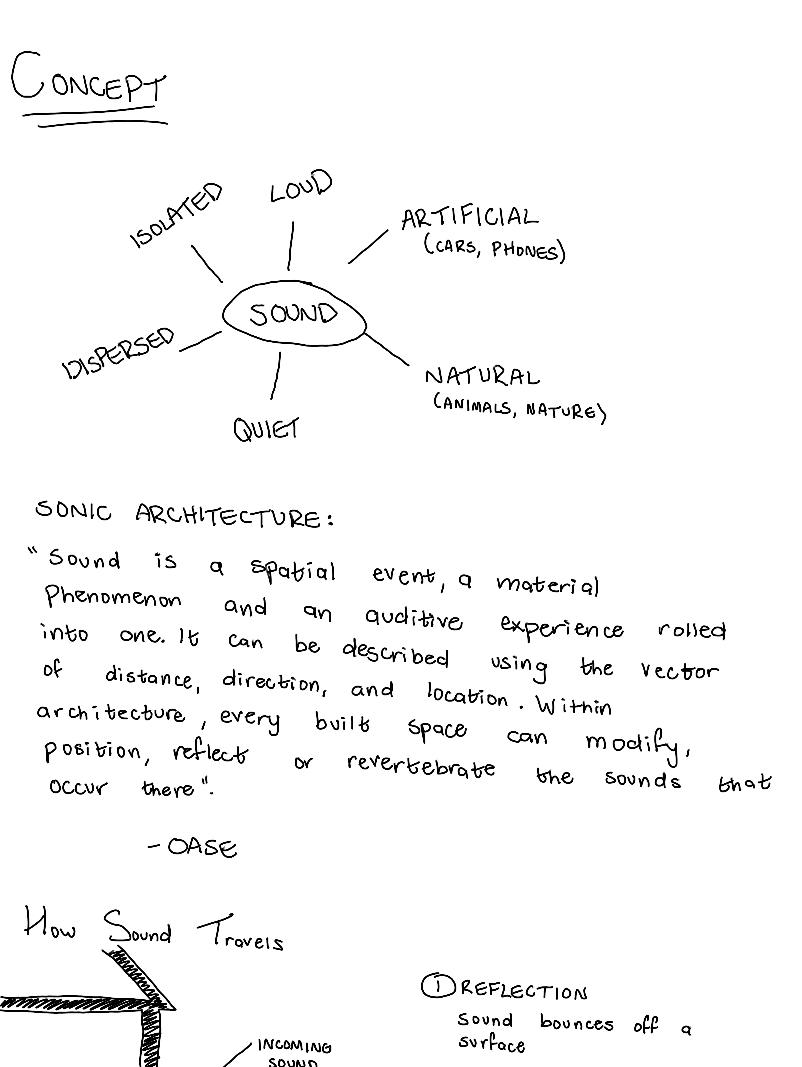 CONCEPT
ISOLATED
LOUD
ARTIFICIAL
(CARS, PHONES)
SOUND
DISPERSED
NATURAL
(ANIMALS, NATURE)
QUIET
SONIC ARCHITECTURE:
"Sound is a spatial event, a material
Phenomenon and an auditive experience rolled
into one. It can be described using the vector
of distance, direction, and location. Within
architecture, every built space can modify,
position, reflect or revertebrate the sounds that
occur there".
- OASE
How Sound Travels
① REFLECTION
Sound bounces off a
surface
INCOMING
SOUND